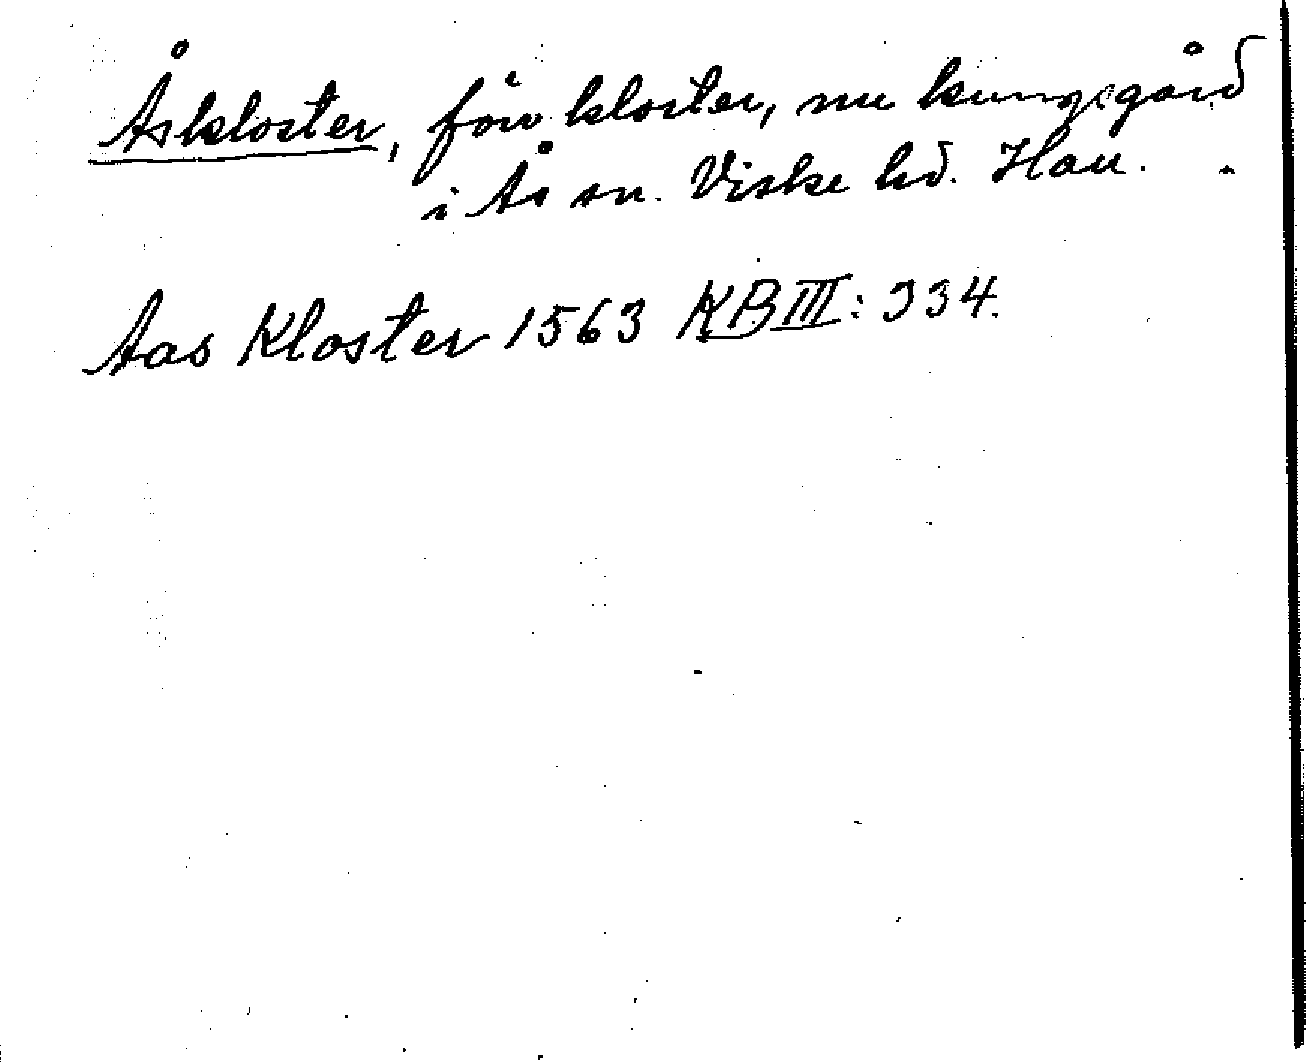 Åskloster, förr kloster, nu kungsgård
i Ås sn. Viske hd. Hall.
Aas Kloster 1563 KB III: 334.